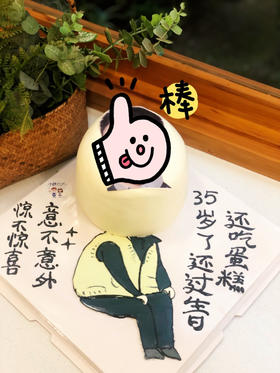 棒
还吃蛋糕
35岁了还过生日
意不意外
惊不惊喜